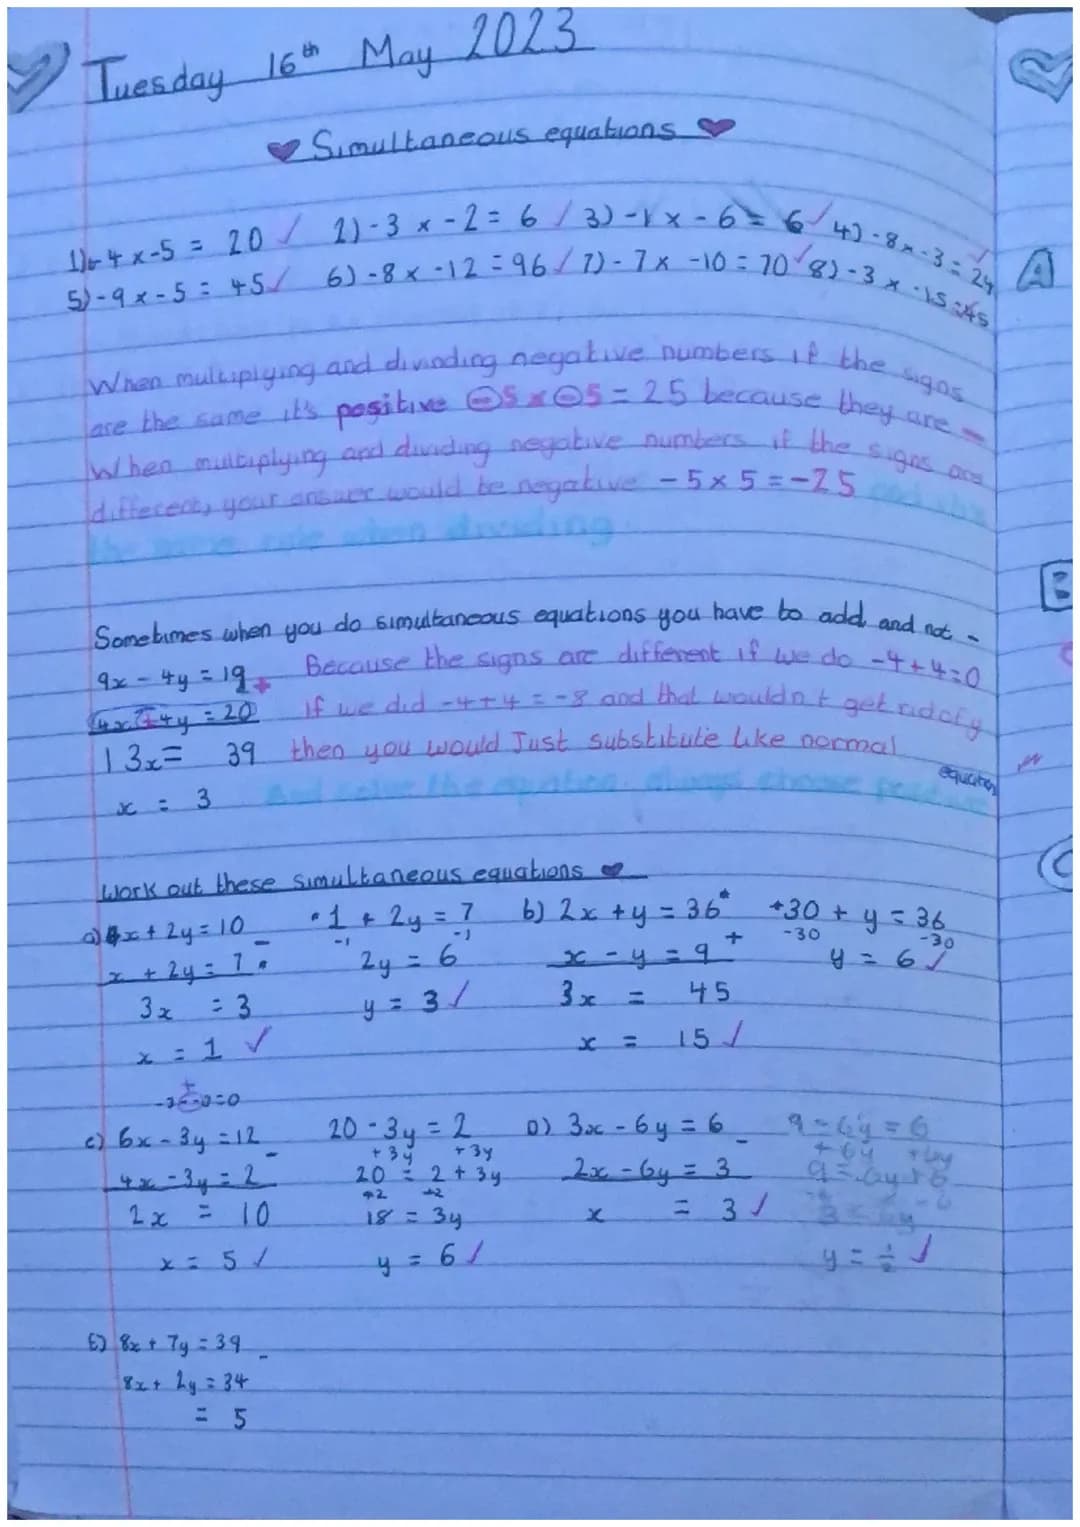 Tuesday 16th May 2023
Simultaneous equations
1) -4 x -5 = 20 ✓ 2) -3 x -2 = 6 ✓ 3) -1 x -6 = 6 ✓ 4) -8 x -3 = 24 ✓
5) -9 x -5 = 45 ✓ 6) -8 x -12 = 96 ✓ 7) -7 x -10 = 70 ✓ 8) -3 x -15 = 45
A
When multiplying and dividing negative numbers if the signs
are the same it's positive -5 x -5 = 25 because they are -
When multiplying and dividing negative numbers if the signs are
different, your answer would be negative -5 x 5 = -25 and the
the same rule when dividing
B
Sometimes when you do simultaneous equations you have to add and not -
9x - 4y = 19 + Because the signs are different if we do -4+4=0
4x + 4y = 20 if we did -4 + 4 = -8 and that wouldn't get rid of y
13x = 39 then you would Just substitute like normal
x = 3 And solve the equation always choose positive equation
C
Work out these simultaneous equations
a) 4x + 2y = 10 - • 1 + 2y = 7 b) 2x + y = 36* *30 + y = 36
x + 2y = 7 • -1 -1 x - y = 9 + -30 -30
2y = 6 y = 6 ✓
3x = 3 y = 3 ✓ 3x = 45
x = 1 ✓ x = 15 ✓
c) 6x - 3y = 12 - 20 - 3y = 2 D) 3x - 6y = 6 - 9 - 6y = 6
+3y +3y +6y +6y
4x - 3y = 2 20 = 2 + 3y 2x - 6y = 3 9 = 6y + 6
2x = 10 18 = 3y x = 3 ✓ 3 = 6y
x = 5 ✓ y = 6 ✓ y = 1/2 ✓
E) 8x + 7y = 39 -
8x + 2y = 34
= 5